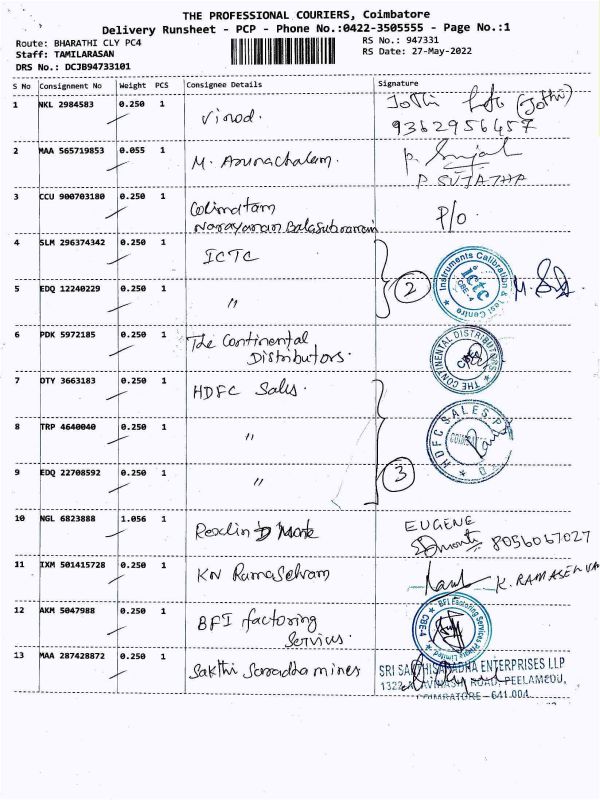 THE PROFESSIONAL COURIERS, Coimbatore
Delivery Runsheet - PCP - Phone No.:0422-3505555 - Page No.:1
Route: BHARATHI CLY PC4 RS No.: 947331
Staff: TAMILARASAN RS Date: 27-May-2022
DRS No.: DCJB94733101
S No Consignment No Weight PCS Consignee Details Signature
1 NKL 2984583 0.250 1 Vinod. Jothi (Jothi)
9362956457
2 MAA 565719853 0.055 1 M. Arunachalam.
P. SUJATHA
3 CCU 900703180 0.250 1 P/o.
Narayanan Balasubramani
4 SLM 296374342 0.250 1 ICTC
Instruments Calibration & Test Centre
ictc
CBE-4
5 EDQ 12240229 0.250 1 " 2
6 PDK 5972185 0.250 1 The Continental
Distributors.
THE CONTINENTAL DISTRIBUTORS
7 DTY 3663183 0.250 1 HDFC Sales.
8 TRP 4640040 0.250 1 "
HDFC SALES P
9 EDQ 22708592 0.250 1 " 3
10 NGL 6823888 1.056 1 EUGENE
8056067027
11 IXM 501415728 0.250 1 KN Ramaselvam K. RAMASELVA
12 AKM 5047988 0.250 1 BFI factoring
Services.
BFI Factoring Services Private Limited
CBE-4
13 MAA 287428872 0.250 1 Sakthi Saradha mines
SRI SAKTHI SARADHA ENTERPRISES LLP
1322, AVINASHI ROAD, PEELAMEDU,
COIMBATORE - 641 004